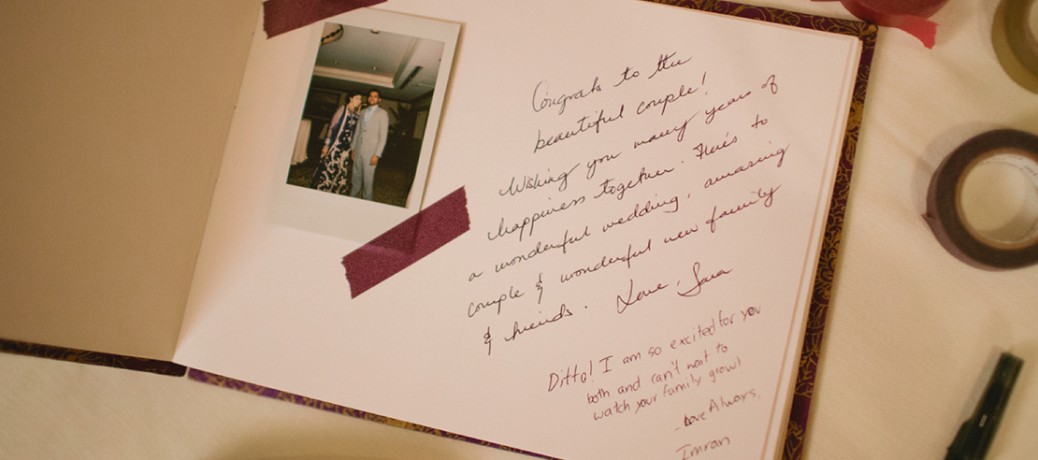 Congrats to the
beautiful couple!
Wishing you many years of
happiness together. Here's to
a wonderful wedding, amazing
couple & wonderful new family
& friends. Love, Sara
Ditto! I am so excited for you
both and can't wait to
watch your family grow!
-Love Always,
Imran